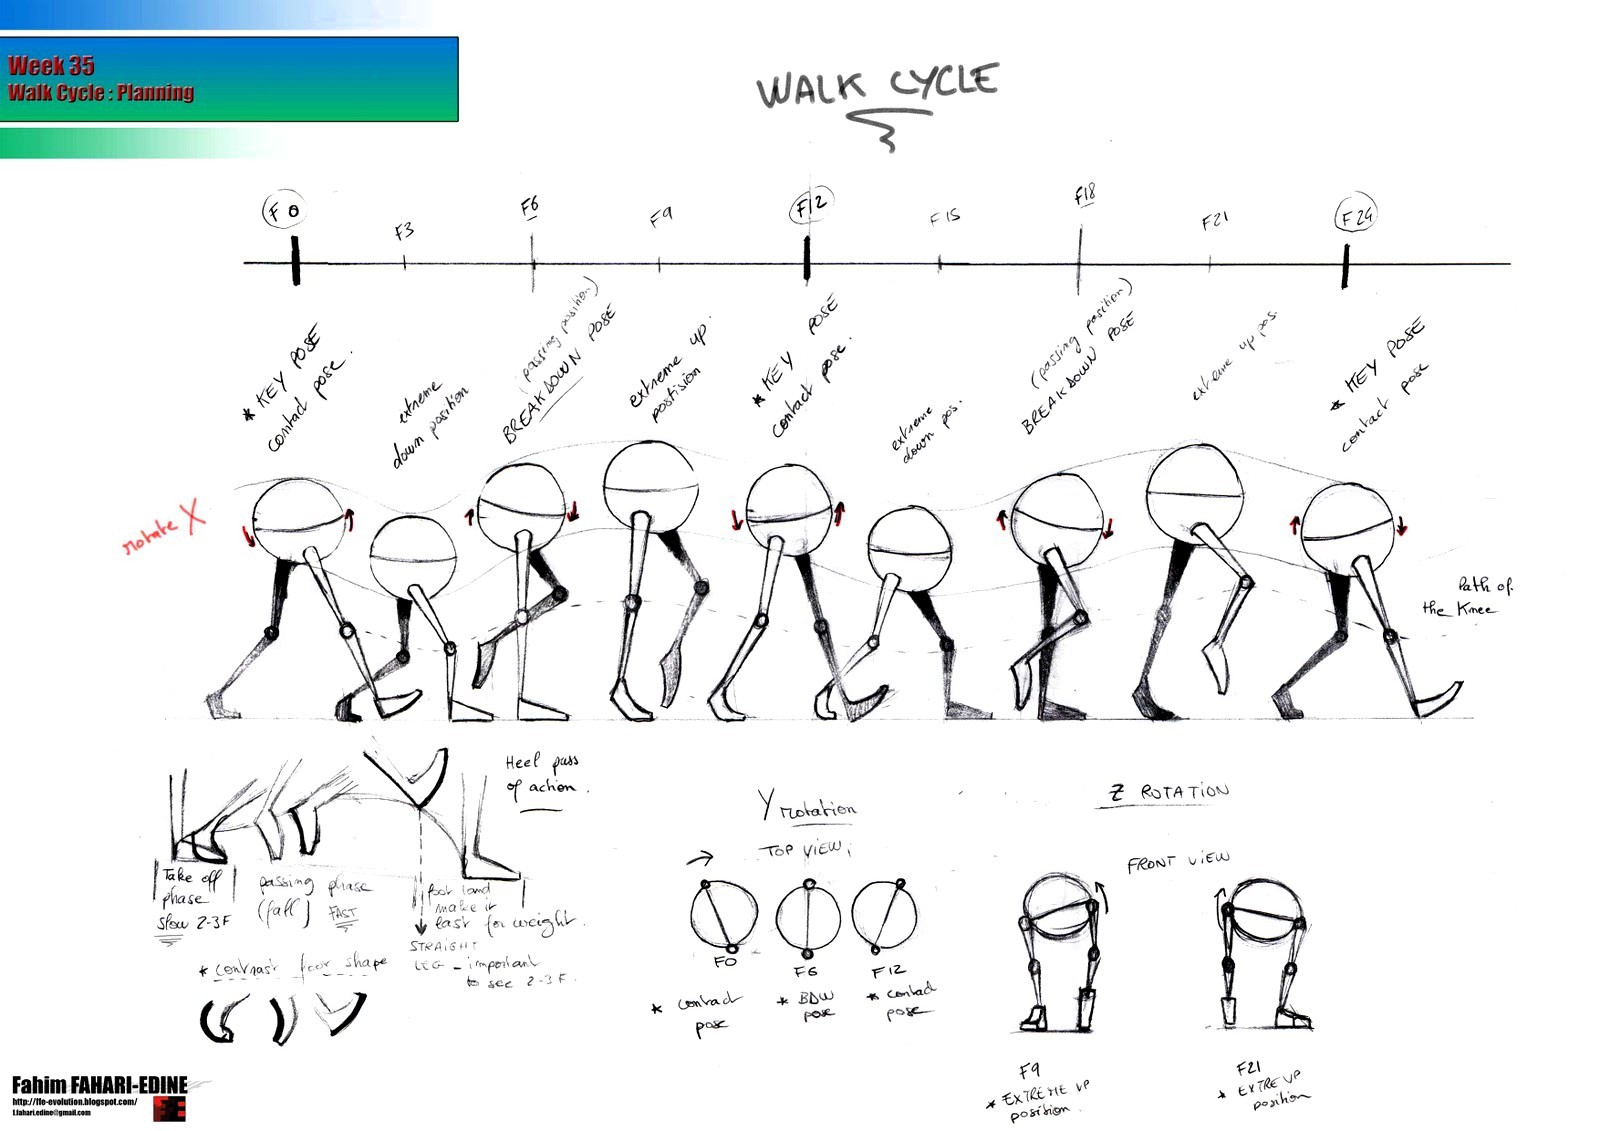 Week 35
Walk Cycle : Planning
WALK CYCLE
F 0
F3
F6
F9
F12
F15
F18
F21
F24
* KEY POSE
contact pose.
extreme
down position
(passing position)
BREAKDOWN POSE
extreme up.
postision
* KEY POSE
contact pose.
extreme
down pos.
(passing position)
BREAKDOWN POSE
extreme up pos.
* KEY POSE
contact pose
rotate X
Path of
the Knee
Heel pass
of action.
Take off
phase
slow 2-3F
passing phase
(fall) FAST
foot land
make it
fast for weight.
STRAIGHT
LEG - important
to see 2-3 F.
* contrast foot shape
Y rotation
TOP VIEW,
F0
* contact
pose
F6
* BDW
pose
F12
* contact
pose
Z ROTATION
FRONT VIEW
F9
* EXTREME UP
position.
F21
* EXTRE UP
position
Fahim FAHARI-EDINE
http://ffe-evolution.blogspot.com/
f.fahari.edine@gmail.com